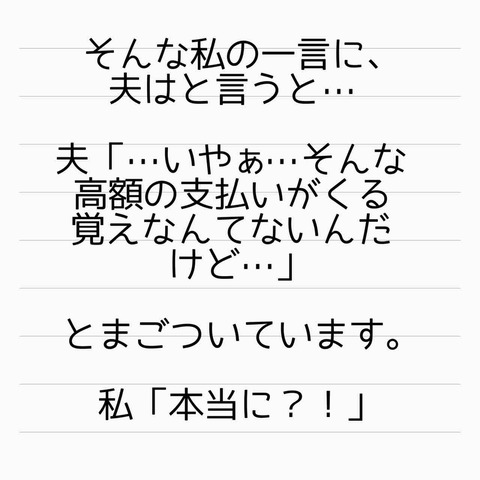 そんな私の一言に、
夫はと言うと…
夫「…いやぁ…そんな
高額の支払いがくる
覚えなんてないんだ
けど…」
とまごついています。
私「本当に？！」